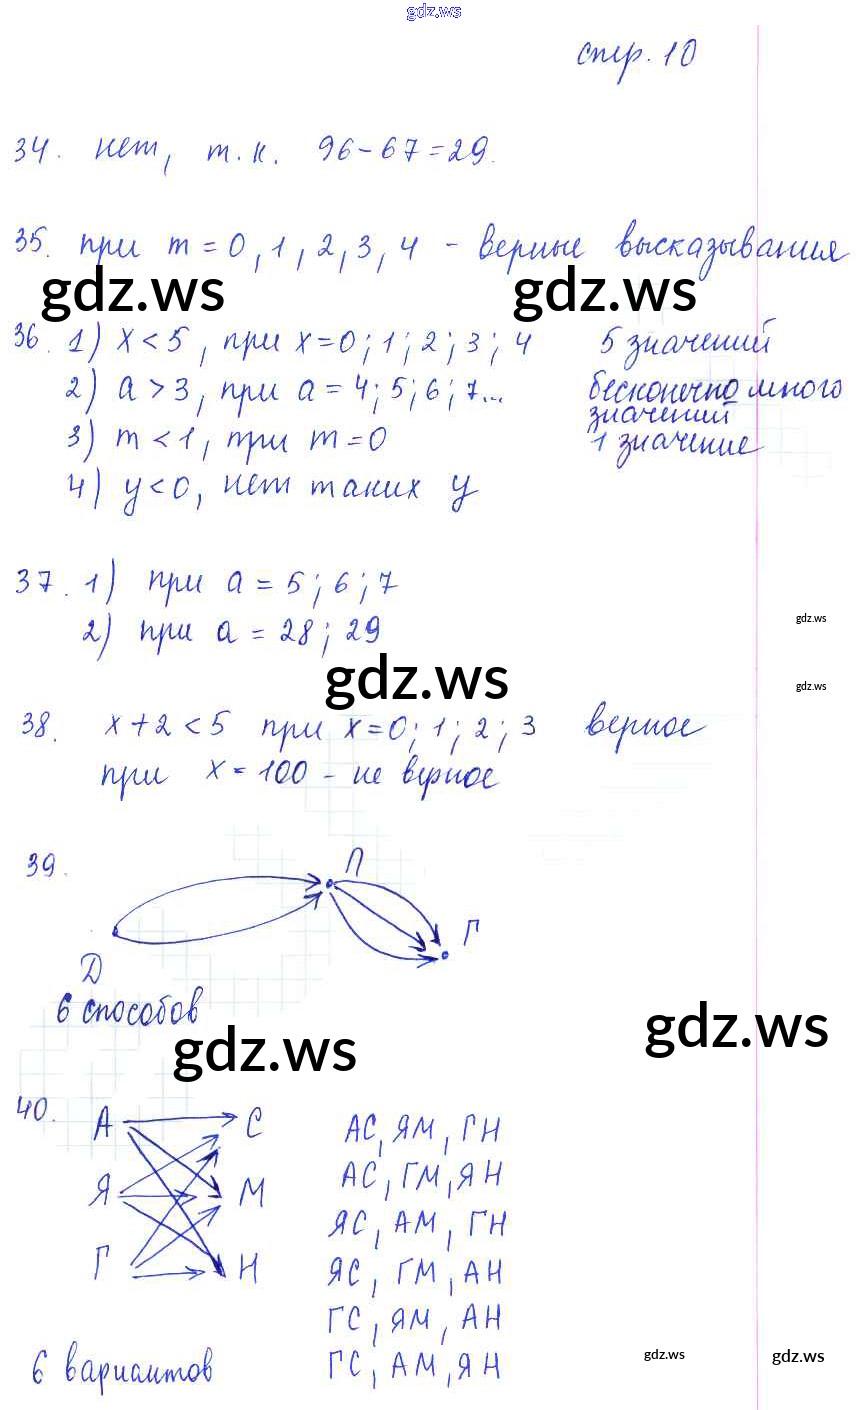 gdz.ws
стр. 10
34. нет, т.к. 96-67=29.
35. при m=0,1,2,3,4 - верные высказывания
gdz.ws gdz.ws
36. 1) x<5, при x=0;1;2;3;4 5 значений
2) a>3, при a=4;5;6;7... бесконечно много значений
3) m<1, при m=0 1 значение
4) y<0, нет таких y
37. 1) при a=5;6;7
gdz.ws
2) при a=28;29
gdz.ws
gdz.ws
38. x+2<5 при x=0;1;2;3 верное
при x=100 - не верное
39. П
Г
Д
6 способов
gdz.ws
gdz.ws
40. А С АС, ЯМ, ГН
Я М АС, ГМ, ЯН
ЯС, АМ, ГН
Г Н ЯС, ГМ, АН
ГС, ЯМ, АН
6 вариантов ГС, АМ, ЯН
gdz.ws gdz.ws